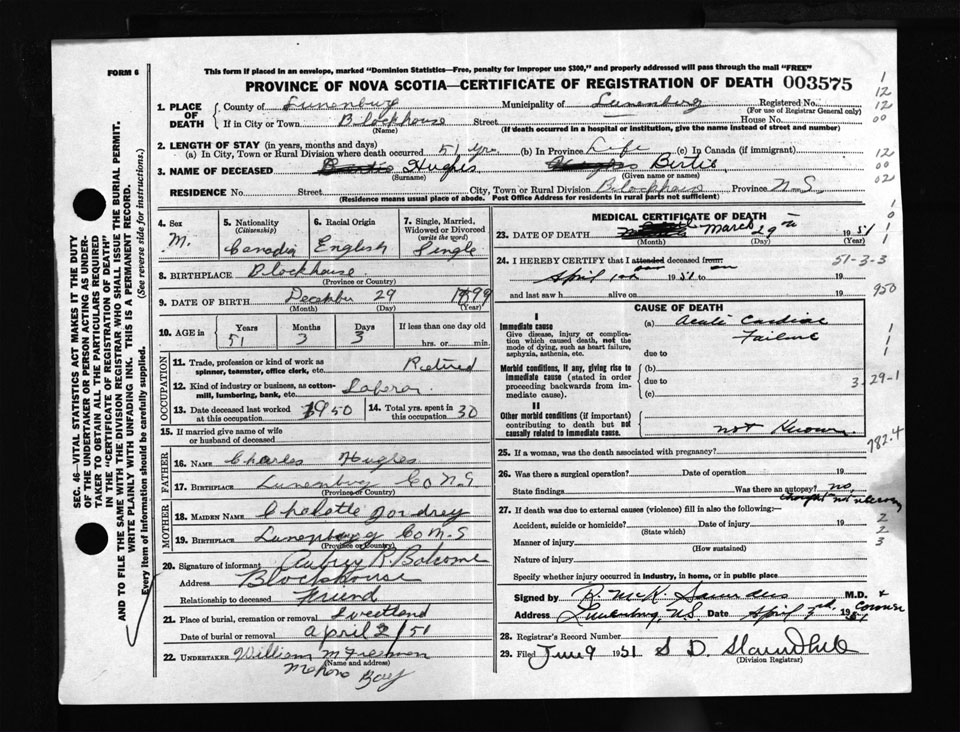 FORM 6
This form if placed in an envelope, marked "Dominion Statistics—Free, penalty for improper use $300," and properly addressed will pass through the mail "FREE"
PROVINCE OF NOVA SCOTIA—CERTIFICATE OF REGISTRATION OF DEATH 003575
SEC. 46—VITAL STATISTICS ACT MAKES IT THE DUTY
OF THE UNDERTAKER OR PERSON ACTING AS UNDER-
TAKER TO OBTAIN ALL THE PARTICULARS REQUIRED
IN THE "CERTIFICATE OF REGISTRATION OF DEATH"
AND TO FILE THE SAME WITH THE DIVISION REGISTRAR WHO SHALL ISSUE THE BURIAL PERMIT.
WRITE PLAINLY WITH UNFADING INK. THIS IS A PERMANENT RECORD.
Every item of Information should be carefully supplied. (See reverse side for instructions.)
1. PLACE OF DEATH
County of Lunenburg Municipality of Lunenburg Registered No.
(For use of Registrar General only)
If in City or Town Blockhouse Street House No.
(Name) (If death occurred in a hospital or institution, give the name instead of street and number)
2. LENGTH OF STAY (in years, months and days)
(a) In City, Town or Rural Division where death occurred 51 yrs. (b) In Province Life (c) In Canada (if immigrant)
3. NAME OF DECEASED Hughes Bertie
(Surname) (Given name or names)
RESIDENCE No. Street City, Town or Rural Division Blockhouse Province N.S.
(Residence means usual place of abode. Post Office Address for residents in rural parts not sufficient)
4. Sex M.
5. Nationality (Citizenship) Canadia
6. Racial Origin English
7. Single, Married, Widowed or Divorced (write the word) Single
8. BIRTHPLACE Blockhouse
(Province or Country)
9. DATE OF BIRTH December 29 1899
(Month) (Day) (Year)
10. AGE in Years 51 Months 3 Days 3 If less than one day old hrs. or min.
OCCUPATION
11. Trade, profession or kind of work as spinner, teamster, office clerk, etc. Retired
12. Kind of industry or business, as cotton-mill, lumbering, bank, etc. Laborer
13. Date deceased last worked at this occupation 1950
14. Total yrs. spent in this occupation 30
15. If married give name of wife or husband of deceased
FATHER
16. NAME Charles Hughes
17. BIRTHPLACE Lunenburg Co N.S
(Province or Country)
MOTHER
18. MAIDEN NAME Chalotte Joudrey
19. BIRTHPLACE Lunenburg Co N.S
(Province or Country)
20. Signature of informant Aubrey R. Balcome
Address Blockhouse
Relationship to deceased Friend
21. Place of burial, cremation or removal Sweetland
Date of burial or removal April 2/51
22. UNDERTAKER William M
(Name and address)
Mahone Bay
MEDICAL CERTIFICATE OF DEATH
23. DATE OF DEATH March 29th 1951
(Month) (Day) (Year)
24. I HEREBY CERTIFY that I attended deceased from:
April 1951 to 19
and last saw h alive on 19
CAUSE OF DEATH
I
Immediate cause
Give disease, injury or complication which caused death, not the mode of dying, such as heart failure, asphyxia, asthenia, etc.
(a) Acute Cardiac
Failure
due to
Morbid conditions, if any, giving rise to immediate cause (stated in order proceeding backwards from immediate cause).
(b)
due to
(c)
II
Other morbid conditions (if important) contributing to death but not causally related to immediate cause.
not known.
25. If a woman, was the death associated with pregnancy?
26. Was there a surgical operation? Date of operation 19
State findings Was there an autopsy? no,
thought not necessary
27. If death was due to external causes (violence) fill in also the following:—
Accident, suicide or homicide? Date of injury 19
(State which)
Manner of injury
(How sustained)
Nature of injury
Specify whether injury occurred in industry, in home, or in public place
Signed by R. McK. Saunders M.D. &
Address Lunenburg, N.S. Date April 3rd, 1951 Coroner
28. Registrar's Record Number
29. Filed June 9 1951 S D
(Division Registrar)
1
12
12
00
12
00
02
51-3-3
950
3-29-1
782.4
2
2
3